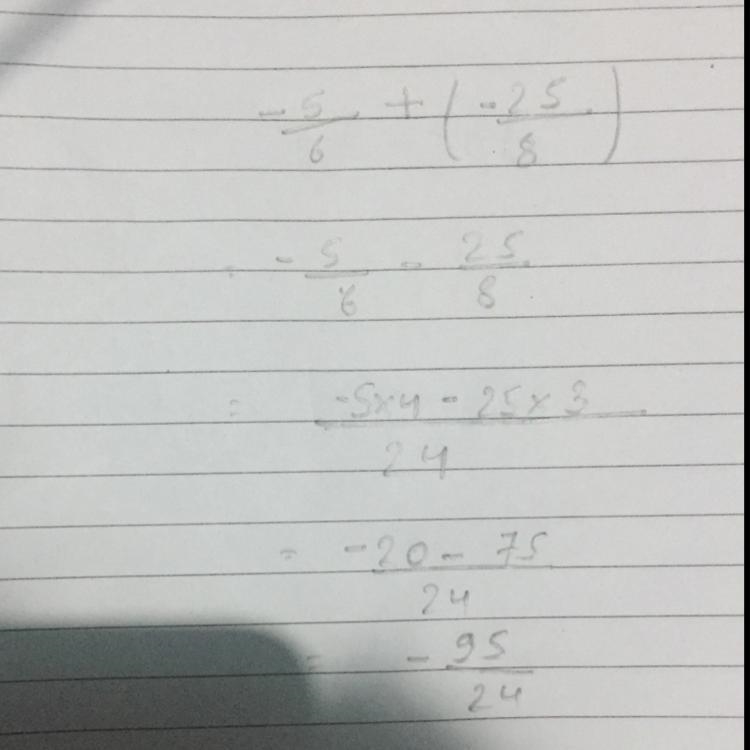 -5/6 + (-25/8)
= -5/6 - 25/8
= -5×4 - 25×3/24
= -20 - 75/24
= -95/24